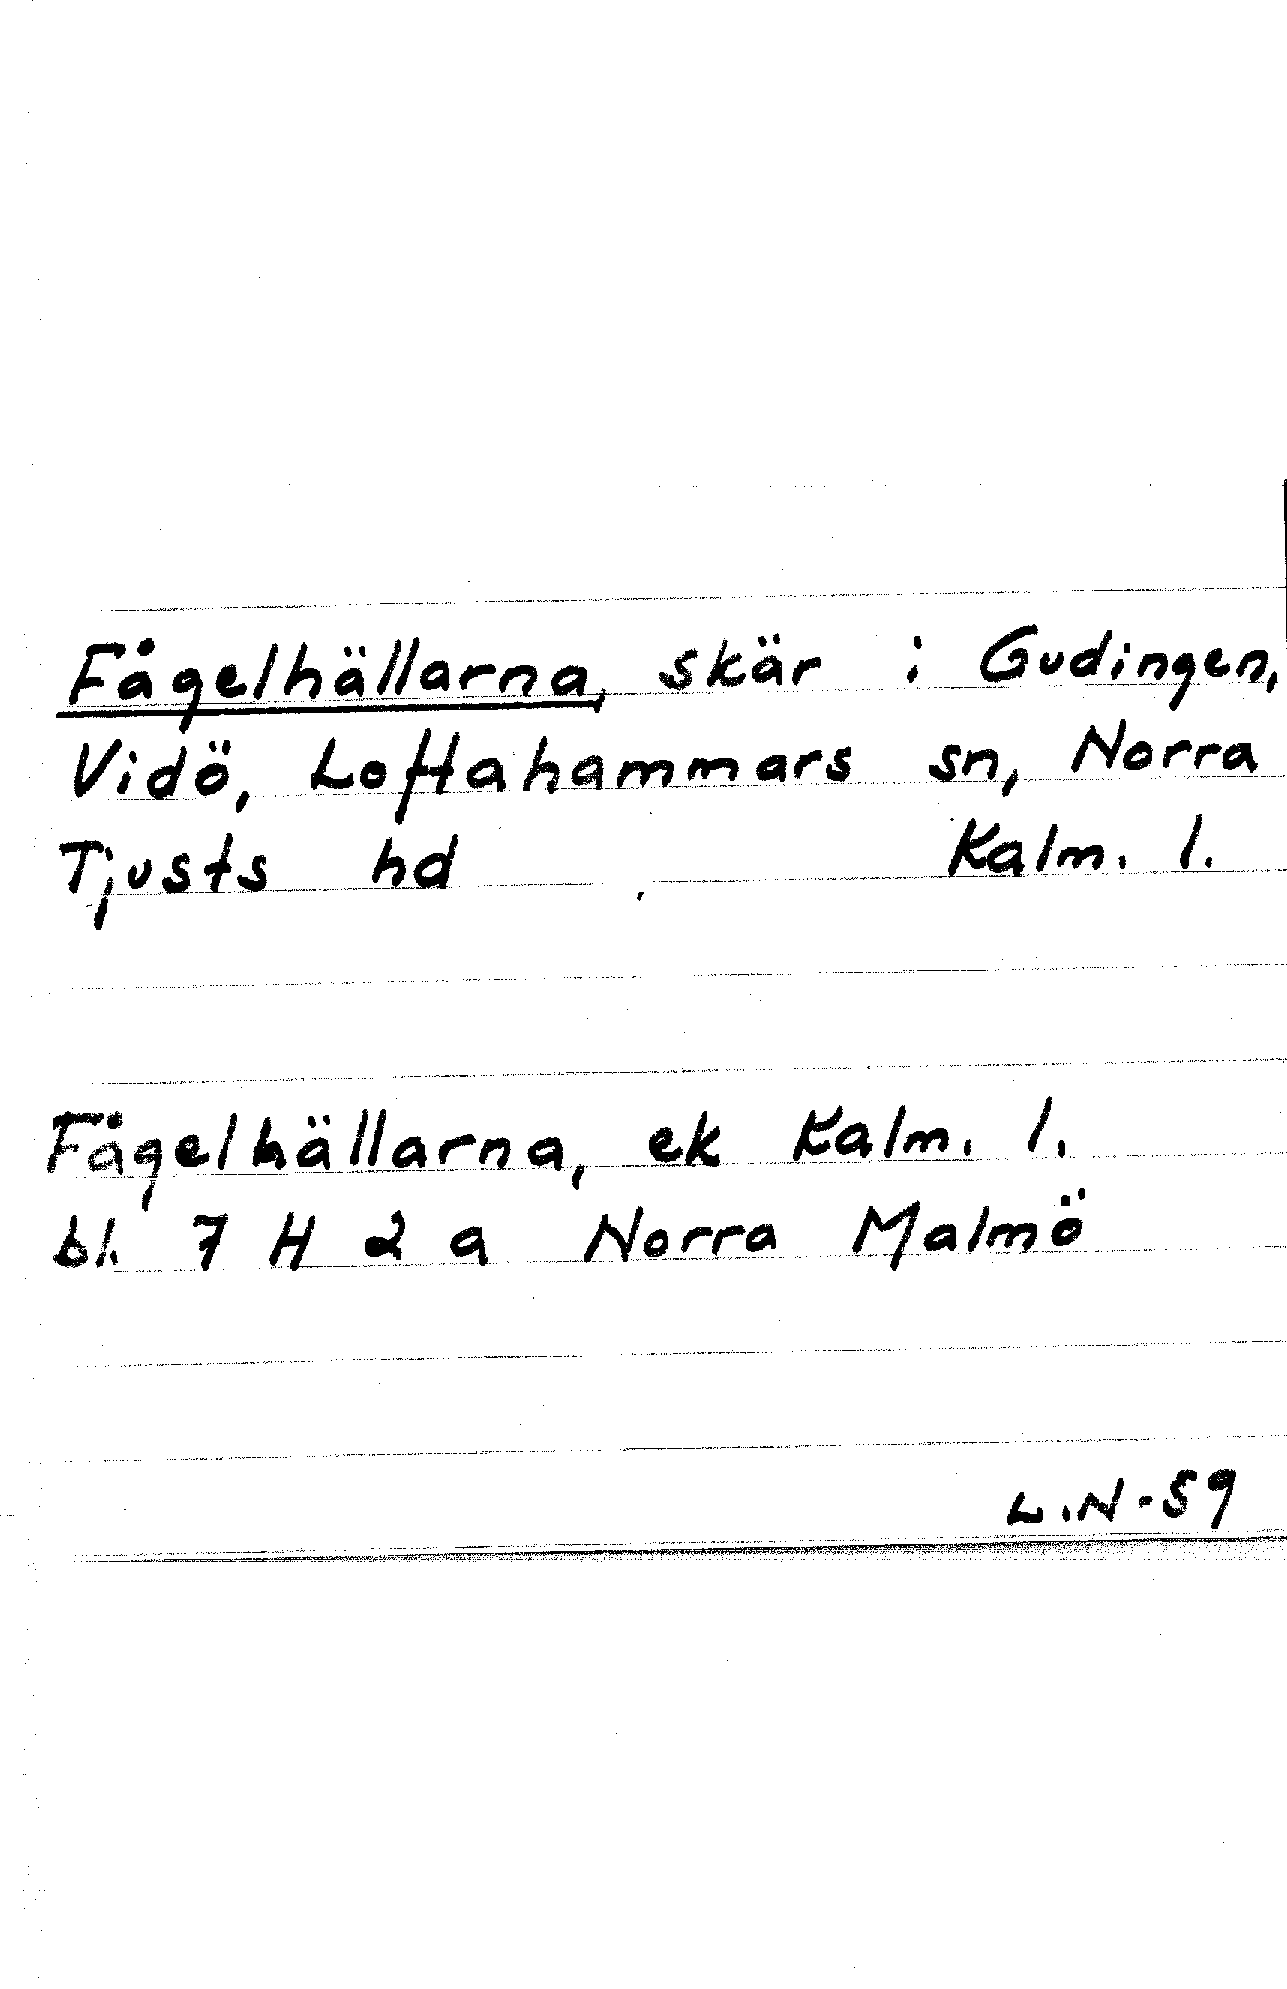 Fågelhällarna, skär i Gudingen,
Vidö, Loftahammars sn, Norra
Tjusts hd Kalm. l.
Fågelhällarna, ek Kalm. l.
bl. 7 H 2 a Norra Malmö
L.N-59